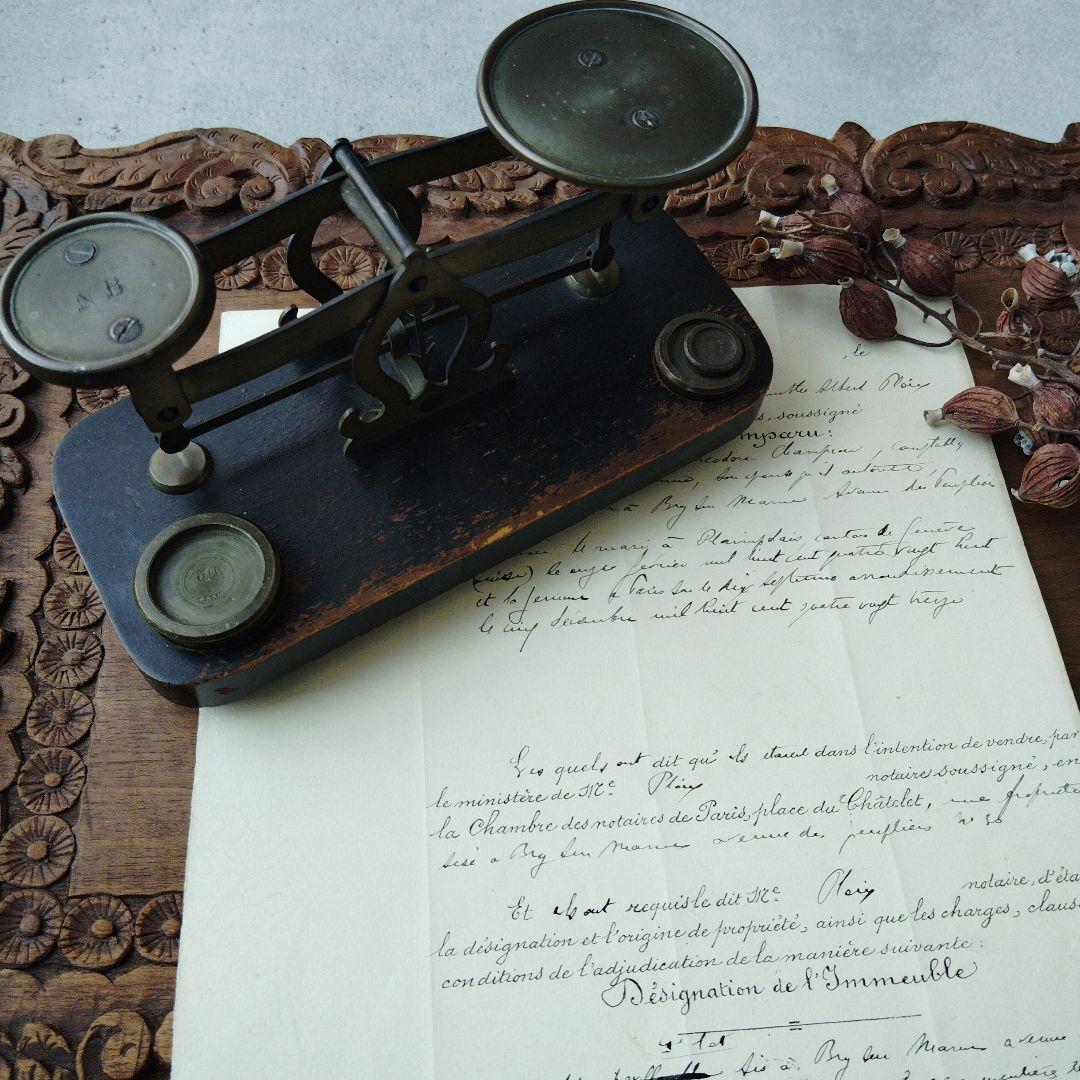 N B
, le
Albert Ploix
soussigné
mparu:
à Bry Sur Marne Avenue des Peupliers
le mari à Plainpalais, canton de Genève
(Suisse) le onze février mil huit cent quatre vingt huit
et la femme à Paris sur le dix septième arrondissement
le cinq décembre mil huit cent quatre vingt treize
Les quels ont dit qu'ils étaient dans l'intention de vendre, par
le ministère de Me Ploix notaire soussigné, en
la Chambre des notaires de Paris, place du Châtelet, une propriété
sise à Bry Sur Marne avenue des peupliers No 30
Et ont requis le dit Me Ploix notaire, d'éta
la désignation et l'origine de propriété, ainsi que les charges, claus
conditions de l'adjudication de la manière suivante:
Désignation de l'Immeuble
sis à Bry Sur Marne avenue